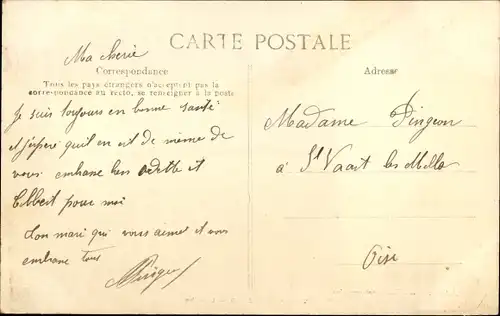 CARTE POSTALE
Ma cherie
Correspondance
Tous les pays étrangers n'acceptent pas la
correspondance au recto, se renseigner à la poste
Adresse
Je suis toujours en bonne santé
et j'espere qu'il en est de meme de
vous embrase bien Odette et
Albert pour moi
ton mari qui vous aime et vous
embrase tous
Madame Pingeon
à St Vaast les Mello
Oise